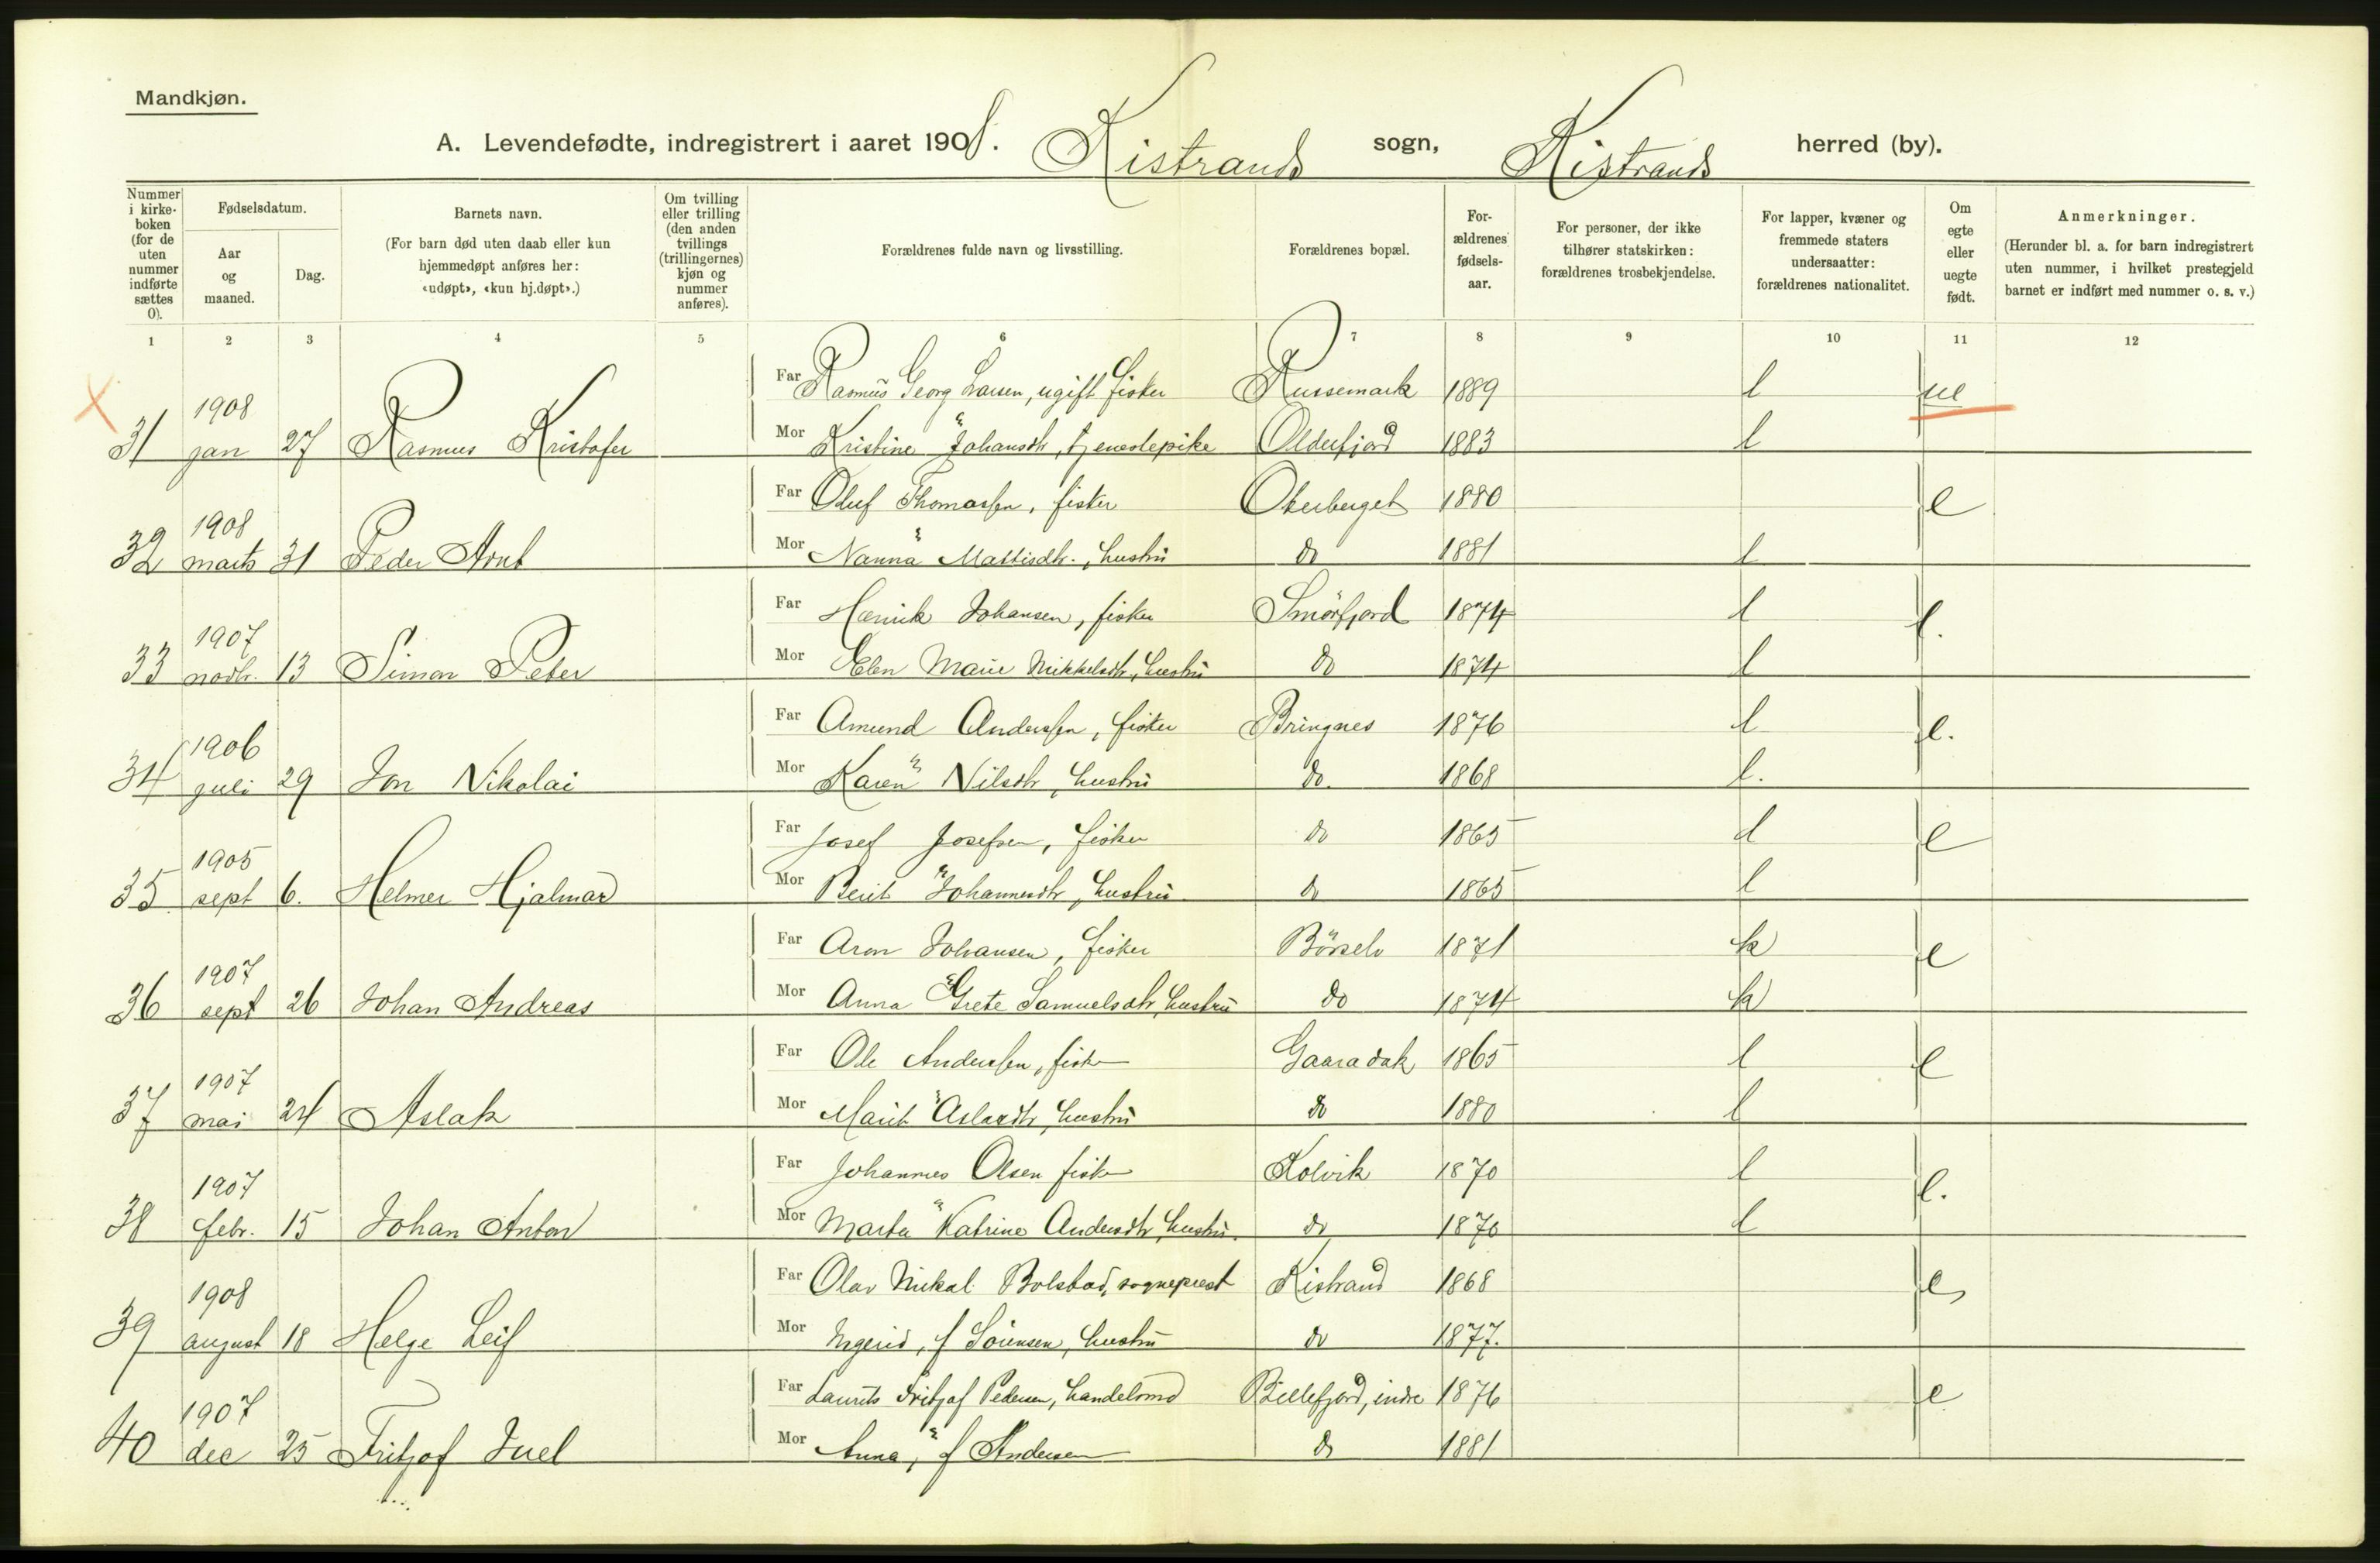 Mandkjøn.
A. Levendefødte, indregistrert i aaret 1908. Kistrands sogn, Kistrands herred (by).
Nummer i kirkeboken (for de uten nummer indførte sættes 0).
Fødselsdatum.
Aar og maaned.
Dag.
Barnets navn.
(For barn død uten daab eller kun hjemmedøpt anføres her: «udøpt», «kun hj.døpt».)
Om tvilling eller trilling (den anden tvillings (trillingernes) kjøn og nummer anføres).
Forældrenes fulde navn og livsstilling.
Forældrenes bopæl.
Forældrenes fødselsaar.
For personer, der ikke tilhører statskirken: forældrenes trosbekjendelse.
For lapper, kvæner og fremmede staters undersaatter: forældrenes nationalitet.
Om egte eller uegte født.
Anmerkninger.
(Herunder bl. a. for barn indregistrert uten nummer, i hvilket prestegjeld barnet er indført med nummer o. s. v.)
1 2 3 4 5 6 7 8 9 10 11 12
Far Rasmus Georg Larsen, ugift fisker Russemark 1889 l ue
31 1908 jan 27 Rasmus Kristofer
Mor Kristine Johansdtr, tjenestepike Olderfjord 1883 l
Far Oluf Thomassen, fisker 1880 e
32 1908 marts 31 Peder Arnt
Mor Nanna Mattisdtr., hustru do 1881 l
Far Henrik Johansen, fisker Smörfjord 1874 l e.
33 1907 novbr. 13 Simon Peter
Mor Elen Marie Mikkelsdtr., hustru do 1874 l
Far Amund Anderssen, fisker Bringnes 1876 l e.
34 1906 juli 29 Jon Nikolai
Mor Karen Nilsdtr, hustru do. 1868 l.
Far Josef Josefsen, fisker do 1865 l e
35 1905 sept 6. Helmer Hjalmar
Mor Berit Johannesdtr, hustru do 1865 l
Far Aron Johansen, fisker Börselv 1871 k e
36 1907 sept 26 Johan Andreas
Mor Anna Grete Samuelsdtr, hustru do 1874 k
Far Ole Anderssen, fisker Gaaradak 1865 l e
37 1907 mai 24 Aslak
Mor Marit Aslaksdtr, hustru do 1880 l
Far Johannes Olsen fisker Kolvik 1870 l e.
38 1907 febr. 15 Johan Anton
Mor Marta Katrine Andersdtr, hustru. do 1870 l
Far Olav Mikal Bolstad, sogneprest Kistrand 1868 e
39 1908 august 18 Helge Leif
Mor Ingerid, f Sörensen, hustru do 1877.
Far Laurits Fritjof Pedersen, handelsmd Billefjord, indre 1876 e
40 1907 dec 25 Fritjof Juel
Mor Anna, f Andersen do 1881